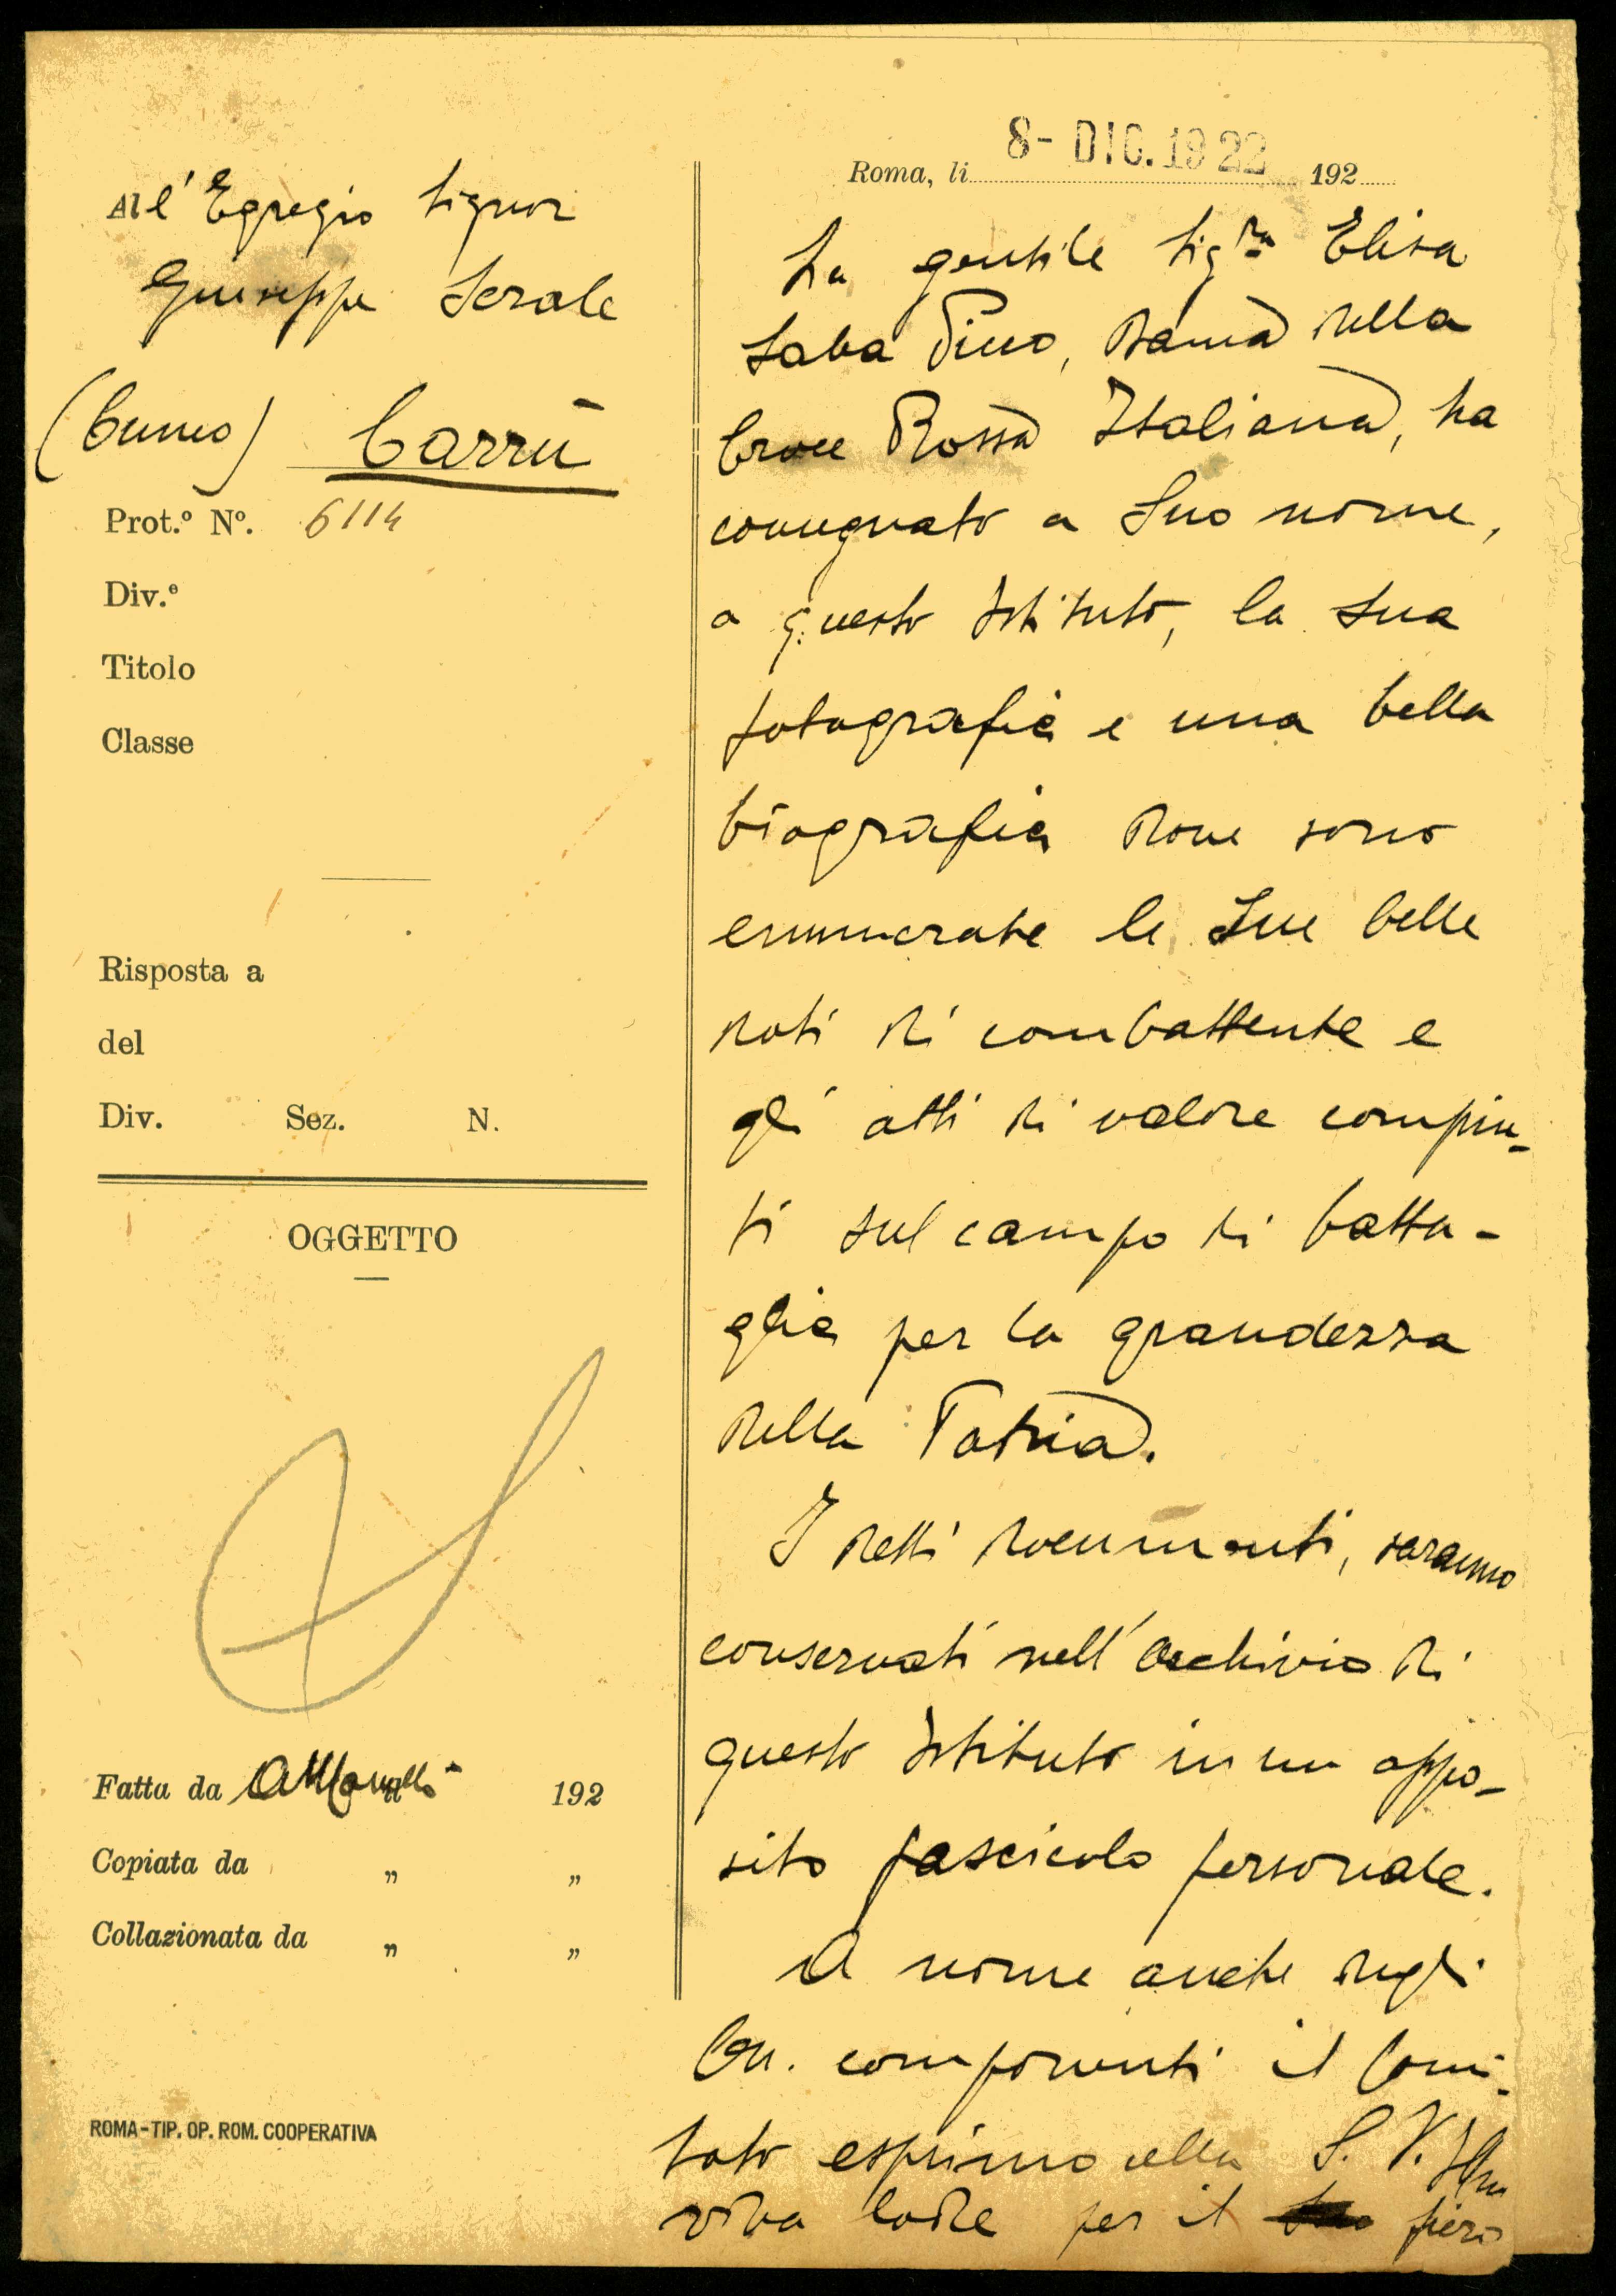 Roma, li 8 - DIC. 1922 192
All' Egregio Signor
Giuseppe Serale
(Cuneo) Carrù
Prot.º Nº. 6114
Div.e
Titolo
Classe
Risposta a
del
Div. Sez. N.
OGGETTO
Fatta da il 192
Copiata da „ „
Collazionata da „ „
ROMA-TIP. OP. ROM. COOPERATIVA
La gentile Sig.ra Elisa
Saba Pino, Dama della
Croce Rossa Italiana, ha
consegnato a Suo nome,
a questo Istituto, la Sua
fotografia e una bella
biografia dove sono
enumerate le Sue belle
doti di combattente e
gli atti di valore compiu-
ti sul campo di batta-
glia per la grandezza
della Patria.
I detti documenti, saranno
conservati nell'archivio di
questo Istituto in un appo-
sito fascicolo personale.
A nome anche degli
On. componenti il Comi-
tato esprimo alla S. V. Ill.ma
viva lode per il fiero